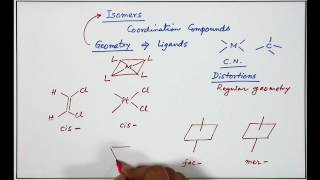 Isomers
Coordination Compounds
Geometry ⇒ Ligands
L L
M
L L
M
C
C.N.
Distortions
Regular geometry
H Cl
H Cl
cis-
Cl
Cl
cis-
fac-
mer-